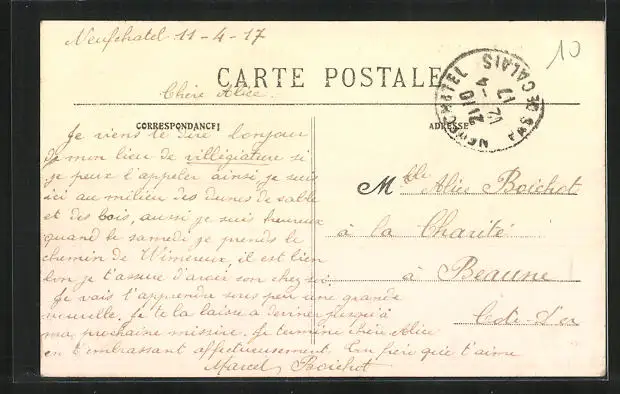 Neufchatel 11-4-17
10
CARTE POSTALE
Chère Alice.
NEUFCHATEL
PAS DE CALAIS
21 10
17
4
17
CORRESPONDANCE
ADRESSE
Je viens te dire bonjour
de mon lieu de villégiature si
je peux l'appeler ainsi je suis
ici au milieu des dunes de sable
et des bois, aussi je suis heureux
quand le samedi je prends le
chemin de Wimereux, il est bien
bon je t'assure d'avoir son chez soi.
Je vais t'apprendre sous peu une grande
nouvelle. Je te la laisse à deviner jusqu'à
ma prochaine missive. Je termine chère Alice
en t'embrassant affectueusement. Ton frère qui t'aime
Marcel Boichot
Mlle Alice Boichot
à la Charité
à Beaune
Côte-d'or